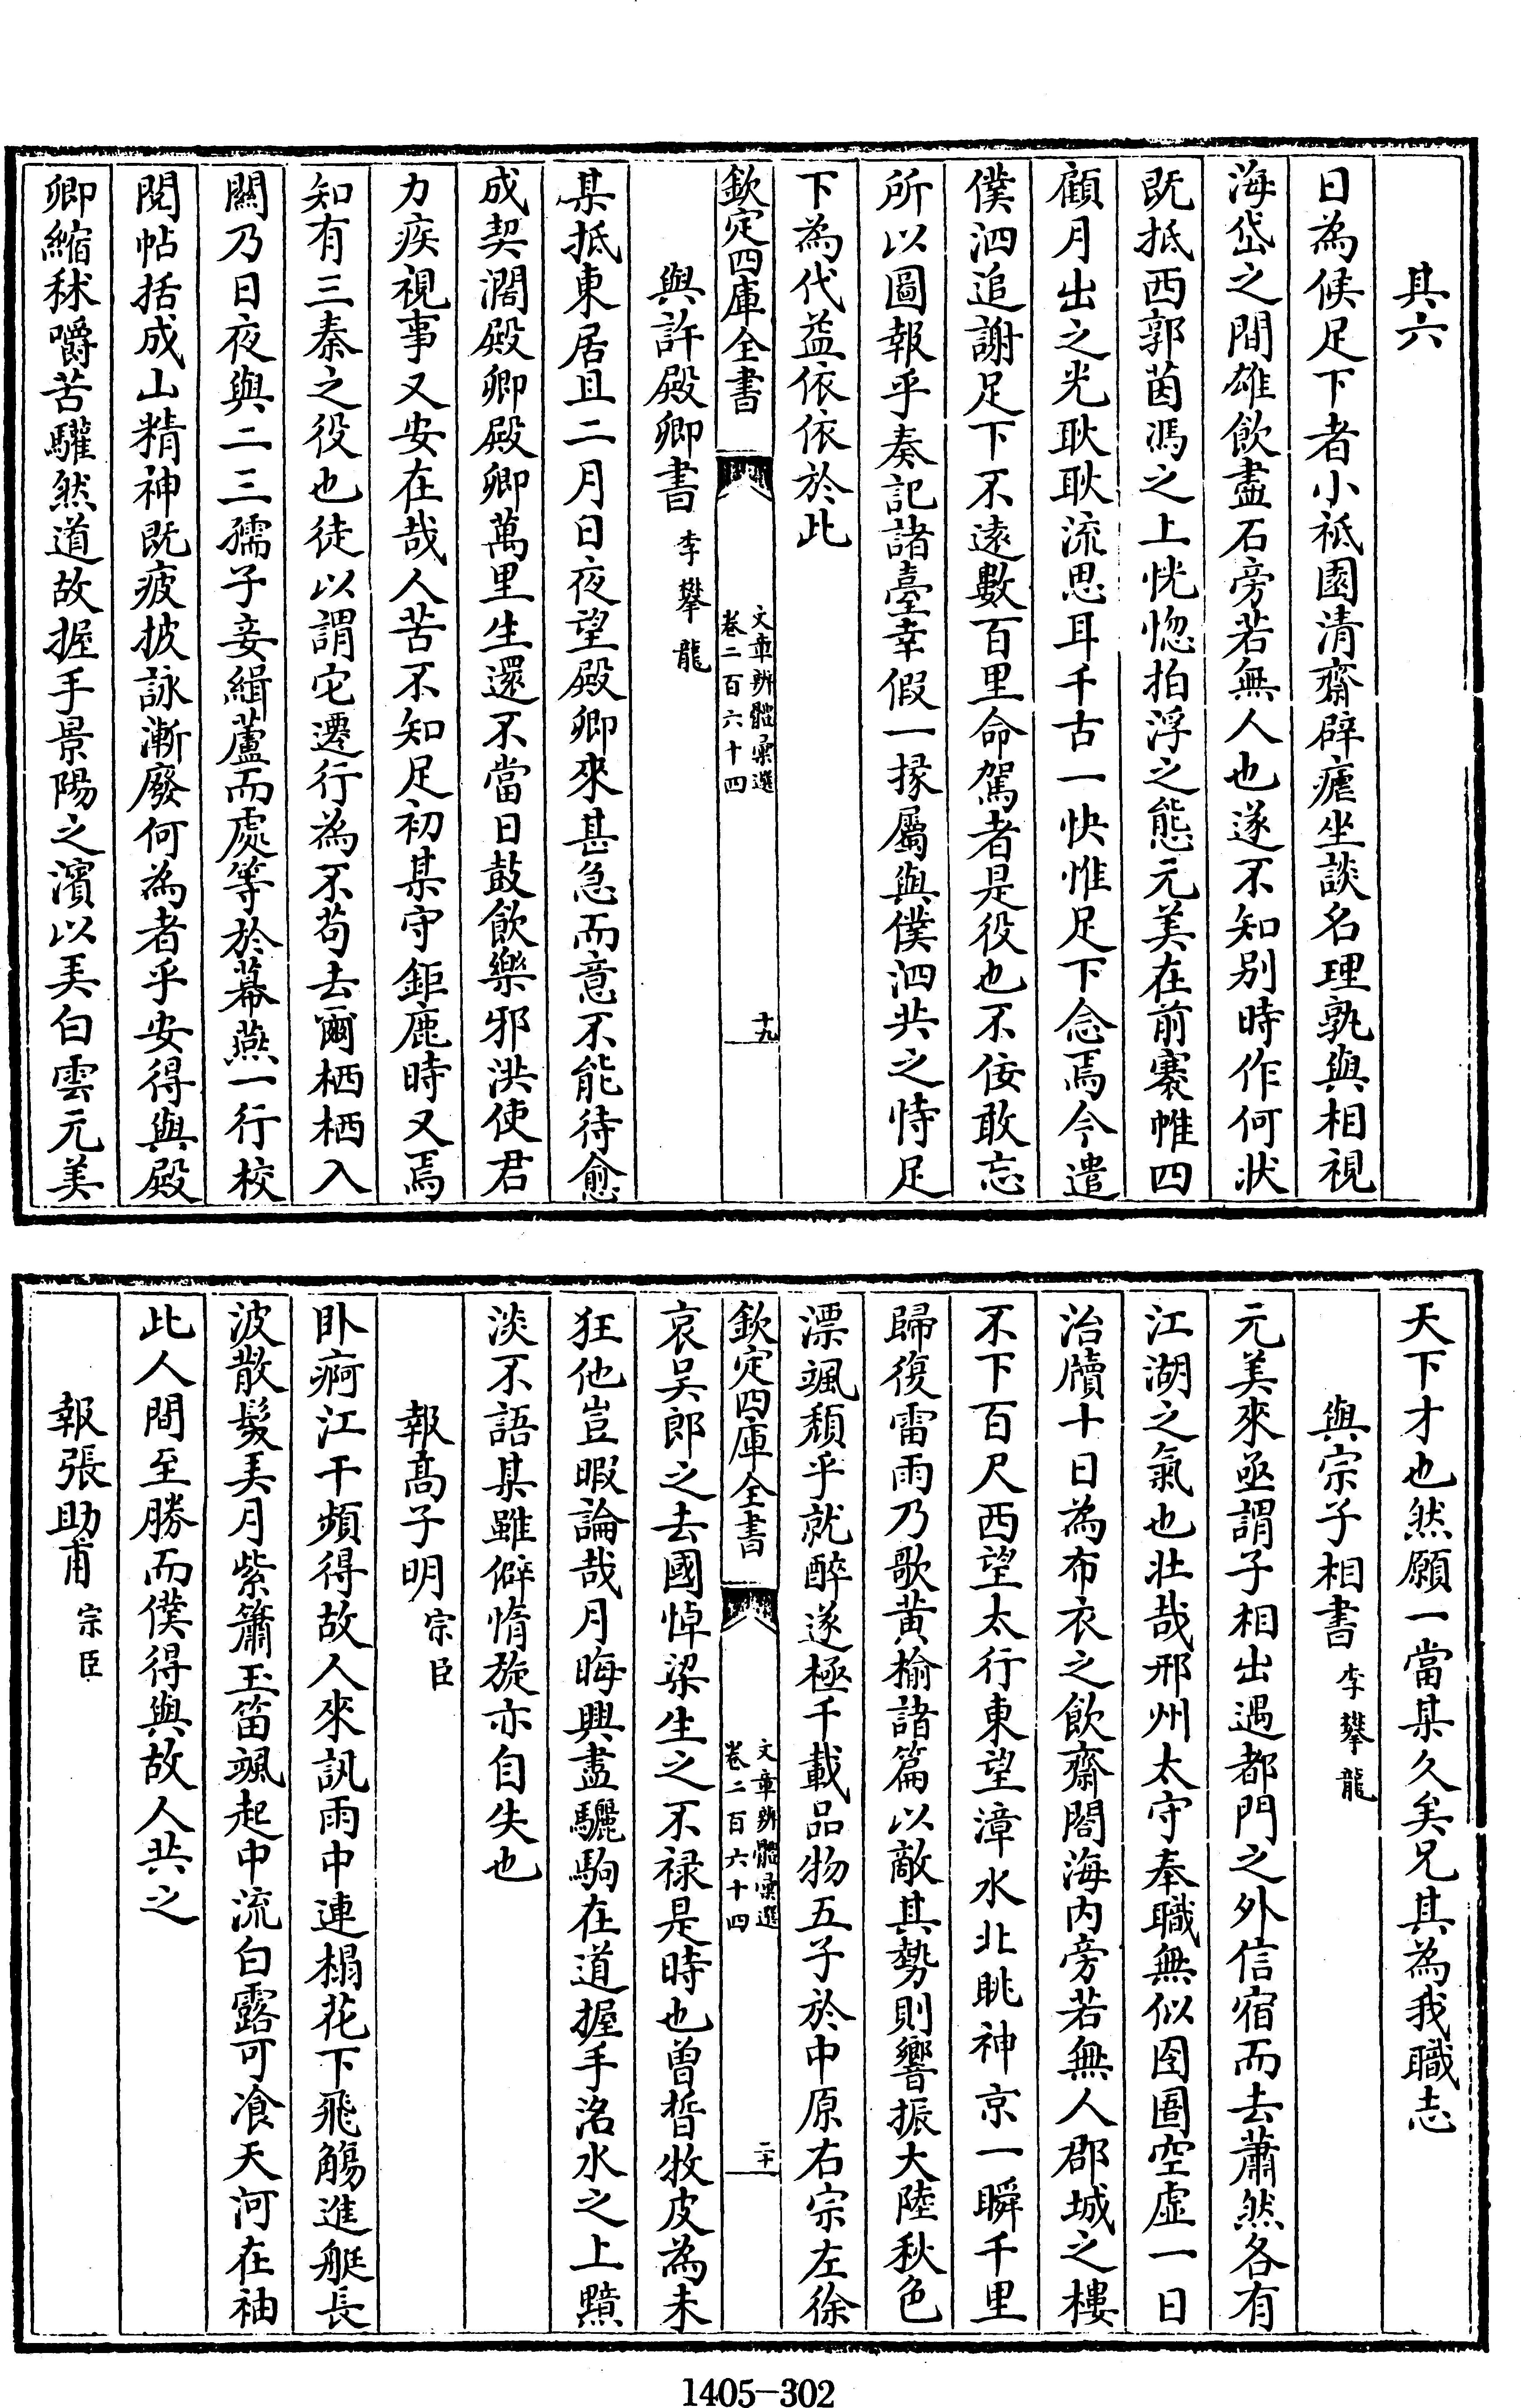 其六
日為候足下者小祗園清齋辟瘧坐談名理孰與相視
海岱之間雄飲盡石旁若無人也遂不知别時作何狀
既抵西郭茵馮之上恍惚拍浮之態元美在前褰帷四
顧月出之光耿耿流思耳千古一快惟足下念焉今遣
僕泗追謝足下不遠數百里命駕者是役也不佞敢忘
所以圖報乎奏記諸臺幸假一掾屬與僕泗共之恃足
下為代益依依於此
欽定四庫全書
文章辨體彙選
卷二百六十四
十九
與許殿卿書 李攀龍
某抵東居且二月日夜望殿卿來甚急而意不能待愈
成契濶殿卿殿卿萬里生還不當日鼓飲樂邪洪使君
力疾視事又安在哉人苦不知足初某守鉅鹿時又焉
知有三秦之役也徒以謂它遷行為不茍去爾栖栖入
關乃日夜與二三孺子妾緝蘆而處等於幕燕一行校
閱帖括成山精神既疲披詠漸廢何為者乎安得與殿
卿縮秫嚼苦驩然道故握手景陽之濱以美白雲元美
天下才也然願一當某久矣兄其為我職志
與宗子相書 李攀龍
元美來亟謂子相出遇都門之外信宿而去蕭然各有
江湖之氣也壯哉邢州太守奉職無似囹圄空虛一日
治牘十日為布衣之飲齋閤海内旁若無人郡城之樓
不下百尺西望太行東望漳水北眺神京一瞬千里
歸復雷雨乃歌黄榆諸篇以敵其勢則響振大陸秋色
漂颯頹乎就醉遂極千載品物五子於中原右宗左徐
欽定四庫全書
文章辨體彙選
卷二百六十四
二十
哀吴郎之去國悼梁生之不禄是時也曾晳牧皮為未
狂他豈暇論哉月晦興盡驪駒在道握手洺水之上黯
淡不語某雖僻惰旋亦自失也
報高子明 宗臣
卧痾江干頻得故人來訊雨中連榻花下飛觴進艇長
波散髮美月紫簫玉笛颯起中流白露可飡天河在袖
此人間至勝而僕得與故人共之
報張助甫 宗臣
1405-302